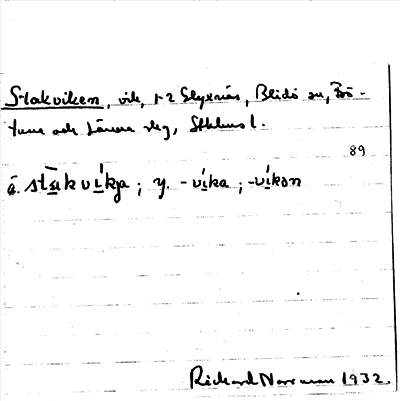 Stakviken, vik, r 2 Styrnäs, Blidö sn, Frö-
tuna och Länna slg, Sthlms l.
89
ä. stākvíkja; y. -víka; -víkən
Rickard Norrman 1932.